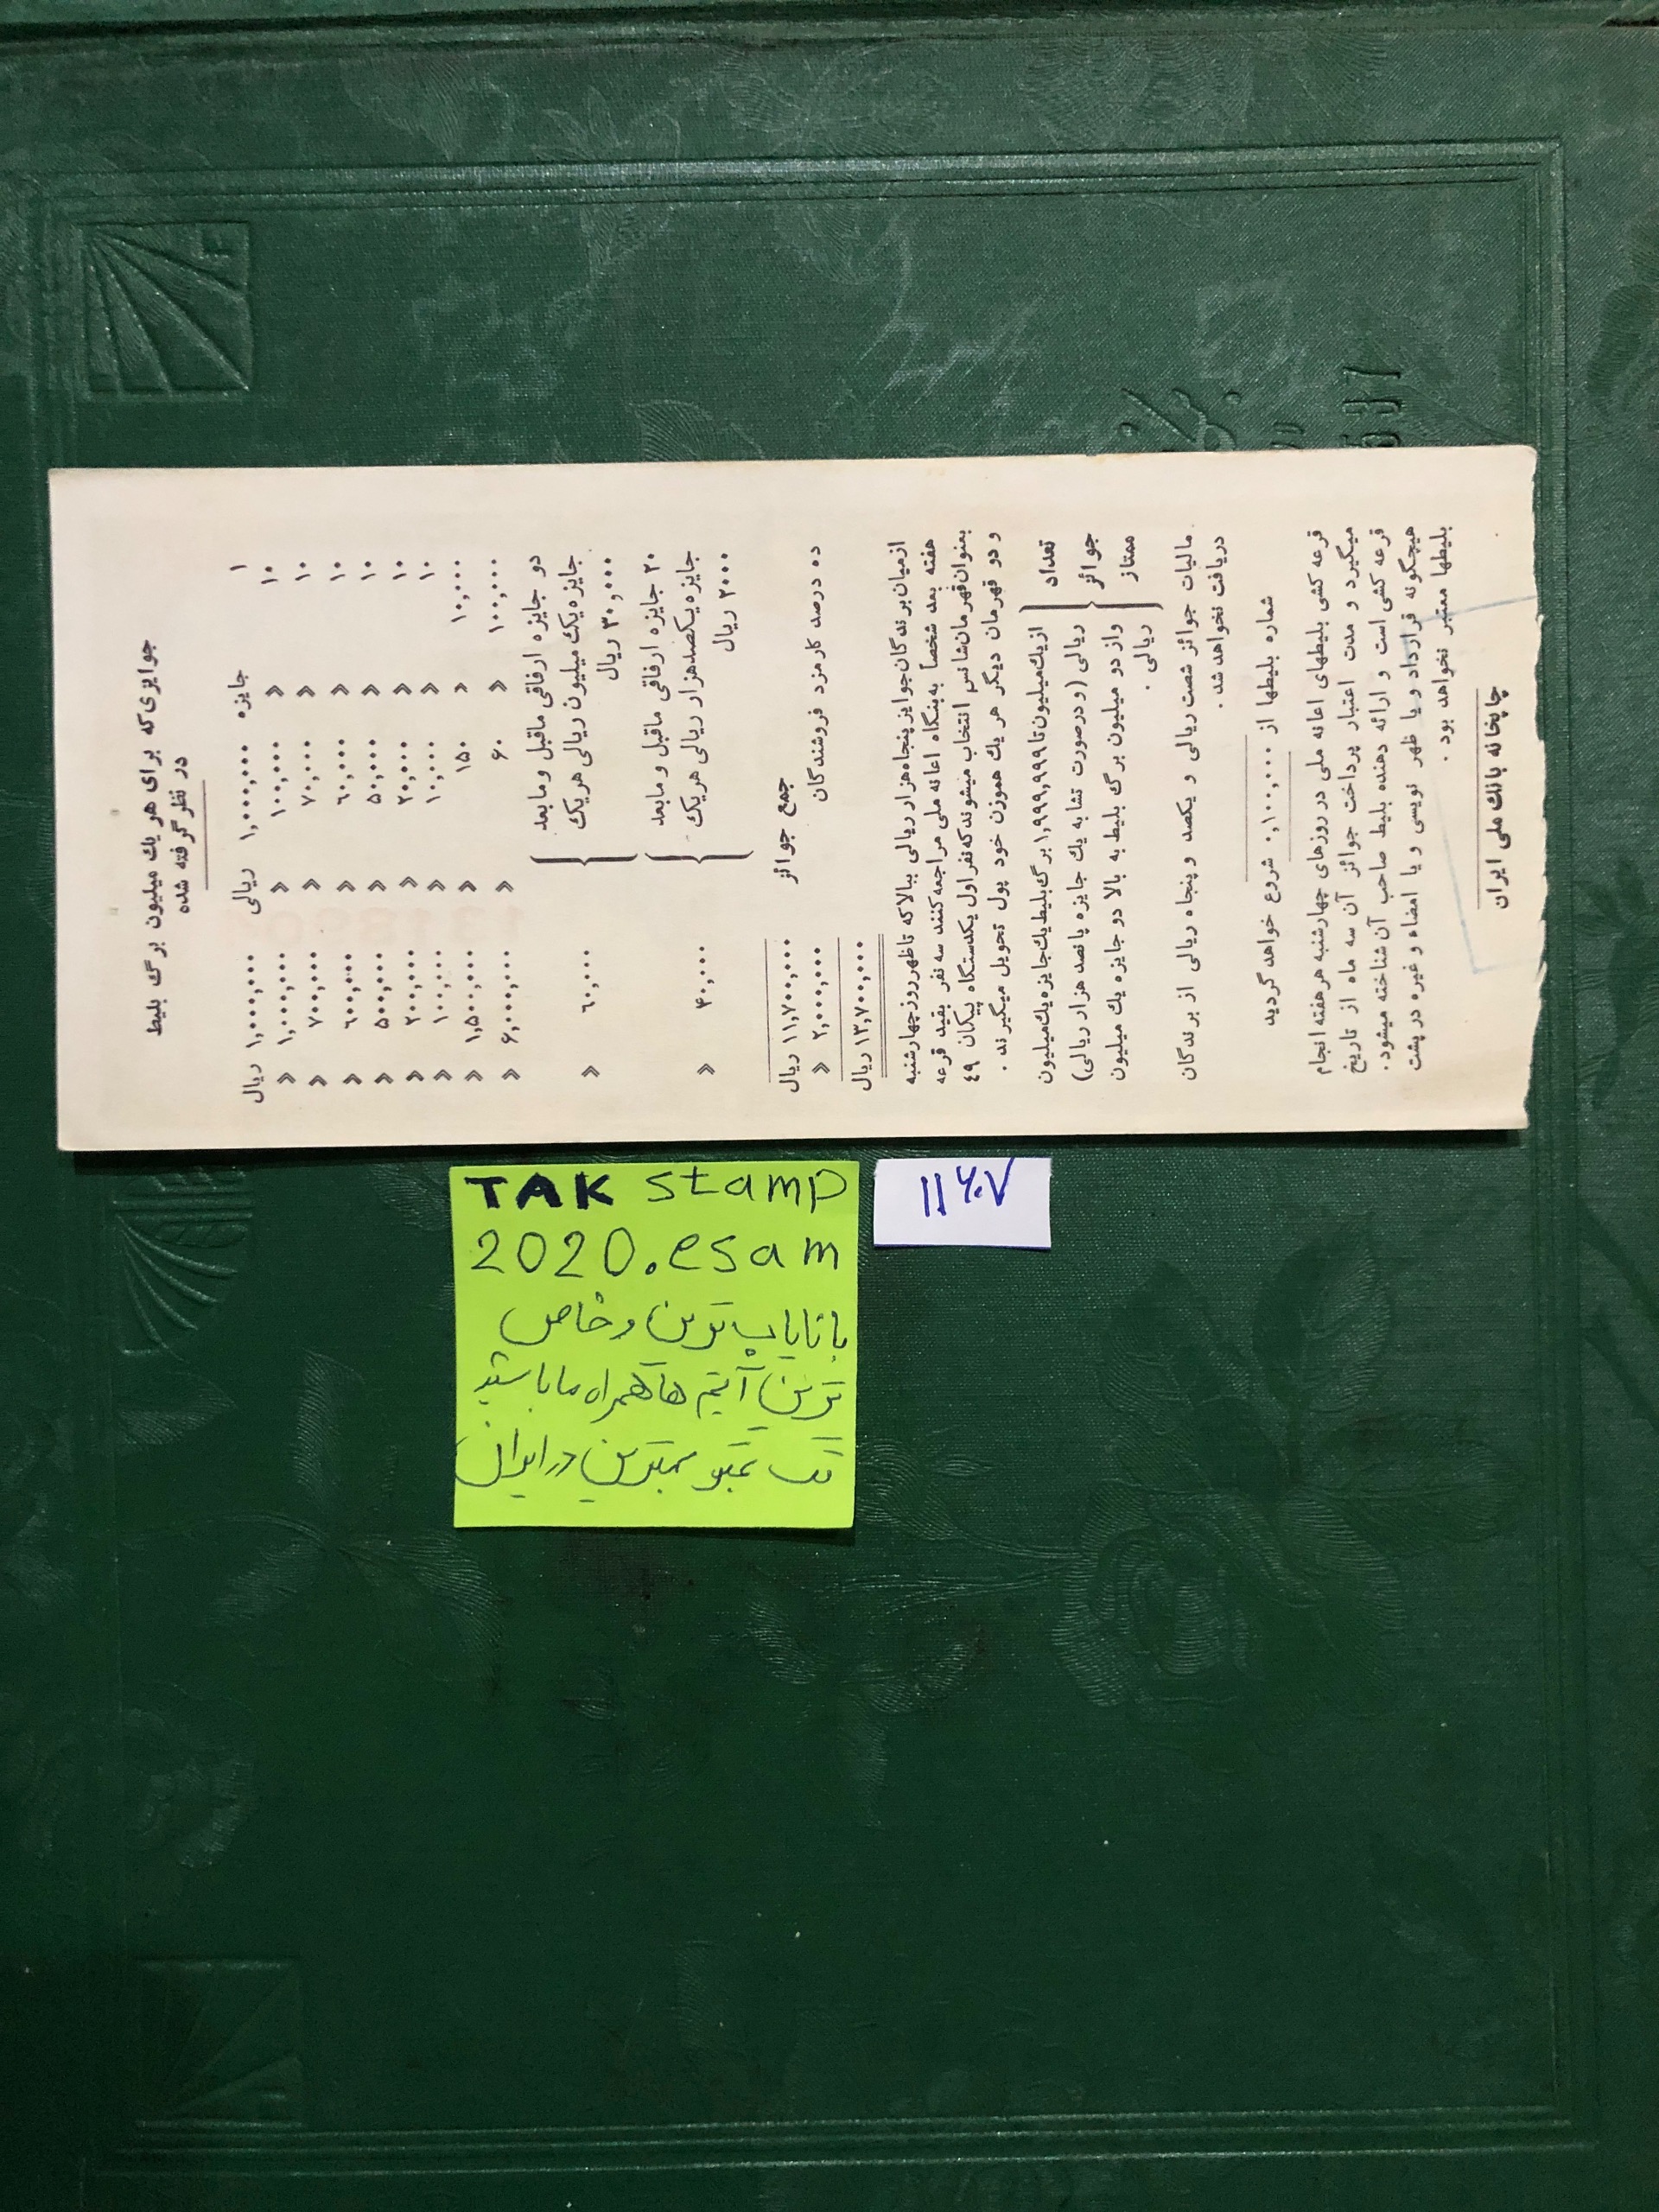 جوایزی که برای هر یک میلیون برگ بلیط
در نظر گرفته شده
۱ جایزه ۱,۰۰۰,۰۰۰ ریالی ۱,۰۰۰,۰۰۰ ریال
۱۰ » ۱۰۰,۰۰۰ » ۱,۰۰۰,۰۰۰ »
۱۰ » ۷۰,۰۰۰ » ۷۰۰,۰۰۰ »
۱۰ » ۶۰,۰۰۰ » ۶۰۰,۰۰۰ »
۱۰ » ۵۰,۰۰۰ » ۵۰۰,۰۰۰ »
۱۰ » ۲۰,۰۰۰ » ۲۰۰,۰۰۰ »
۱۰ » ۱۰,۰۰۰ » ۱۰۰,۰۰۰ »
۱۰,۰۰۰ » ۱۵۰ » ۱,۵۰۰,۰۰۰ »
۱۰۰,۰۰۰ » ۶۰ » ۶,۰۰۰,۰۰۰ »
دو جایزه ارفاقی ماقبل و مابعد
جایزه یک میلیون ریالی هر یک
۳۰,۰۰۰ ریال
۶۰,۰۰۰ »
۲۰ جایزه ارفاقی ماقبل و مابعد
جایزه یکصدهزار ریالی هر یک
۲۰۰۰ ریال
۴۰,۰۰۰ »
جمع جوائز ۱۱,۷۰۰,۰۰۰ ریال
ده درصد کارمزد فروشندگان ۲,۰۰۰,۰۰۰ »
۱۳,۷۰۰,۰۰۰ ریال
از میان برندگان جوایز پنجاه هزار ریالی ببالا که تا ظهر روز چهارشنبه
هفته بعد شخصاً به بنگاه اعانه ملی مراجعه کنند سه نفر بقید قرعه
بعنوان قهرمان شانس انتخاب میشوند که نفر اول یکدستگاه پیکان ۴۹
و دو قهرمان دیگر هر یک هموزن خود پول تحویل میگیرند .
تعداد
جوائز
ممتاز
از یک میلیون تا ۱,۹۹۹,۹۹۹ برگ بلیط یک جایزه یک میلیون
ریالی (و در صورت تشابه یک جایزه پانصد هزار ریالی)
و از دو میلیون برگ بلیط به بالا دو جایزه یک میلیون
ریالی .
مالیات جوائز شصت ریالی و یکصد و پنجاه ریالی از برندگان
دریافت نخواهد شد .
شماره بلیطها از ۱۰۰,۰۰۰. شروع خواهد گردید
قرعه کشی بلیطهای اعانه ملی در روزهای چهارشنبه هر هفته انجام
میگیرد و مدت اعتبار پرداخت جوائز آن سه ماه از تاریخ
قرعه کشی است و ارائه دهنده بلیط صاحب آن شناخته میشود .
هیچگونه قرارداد و یا ظهر نویسی و یا امضاء و غیره در پشت
بلیطها معتبر نخواهد بود .
چاپخانه بانک ملی ایران
TAK stamp
2020.esam
با نایاب ترین و خاص
ترین آیتم ها همراه ما باشید
تک تمبر بهترین در ایران
۱۱۶۰۷